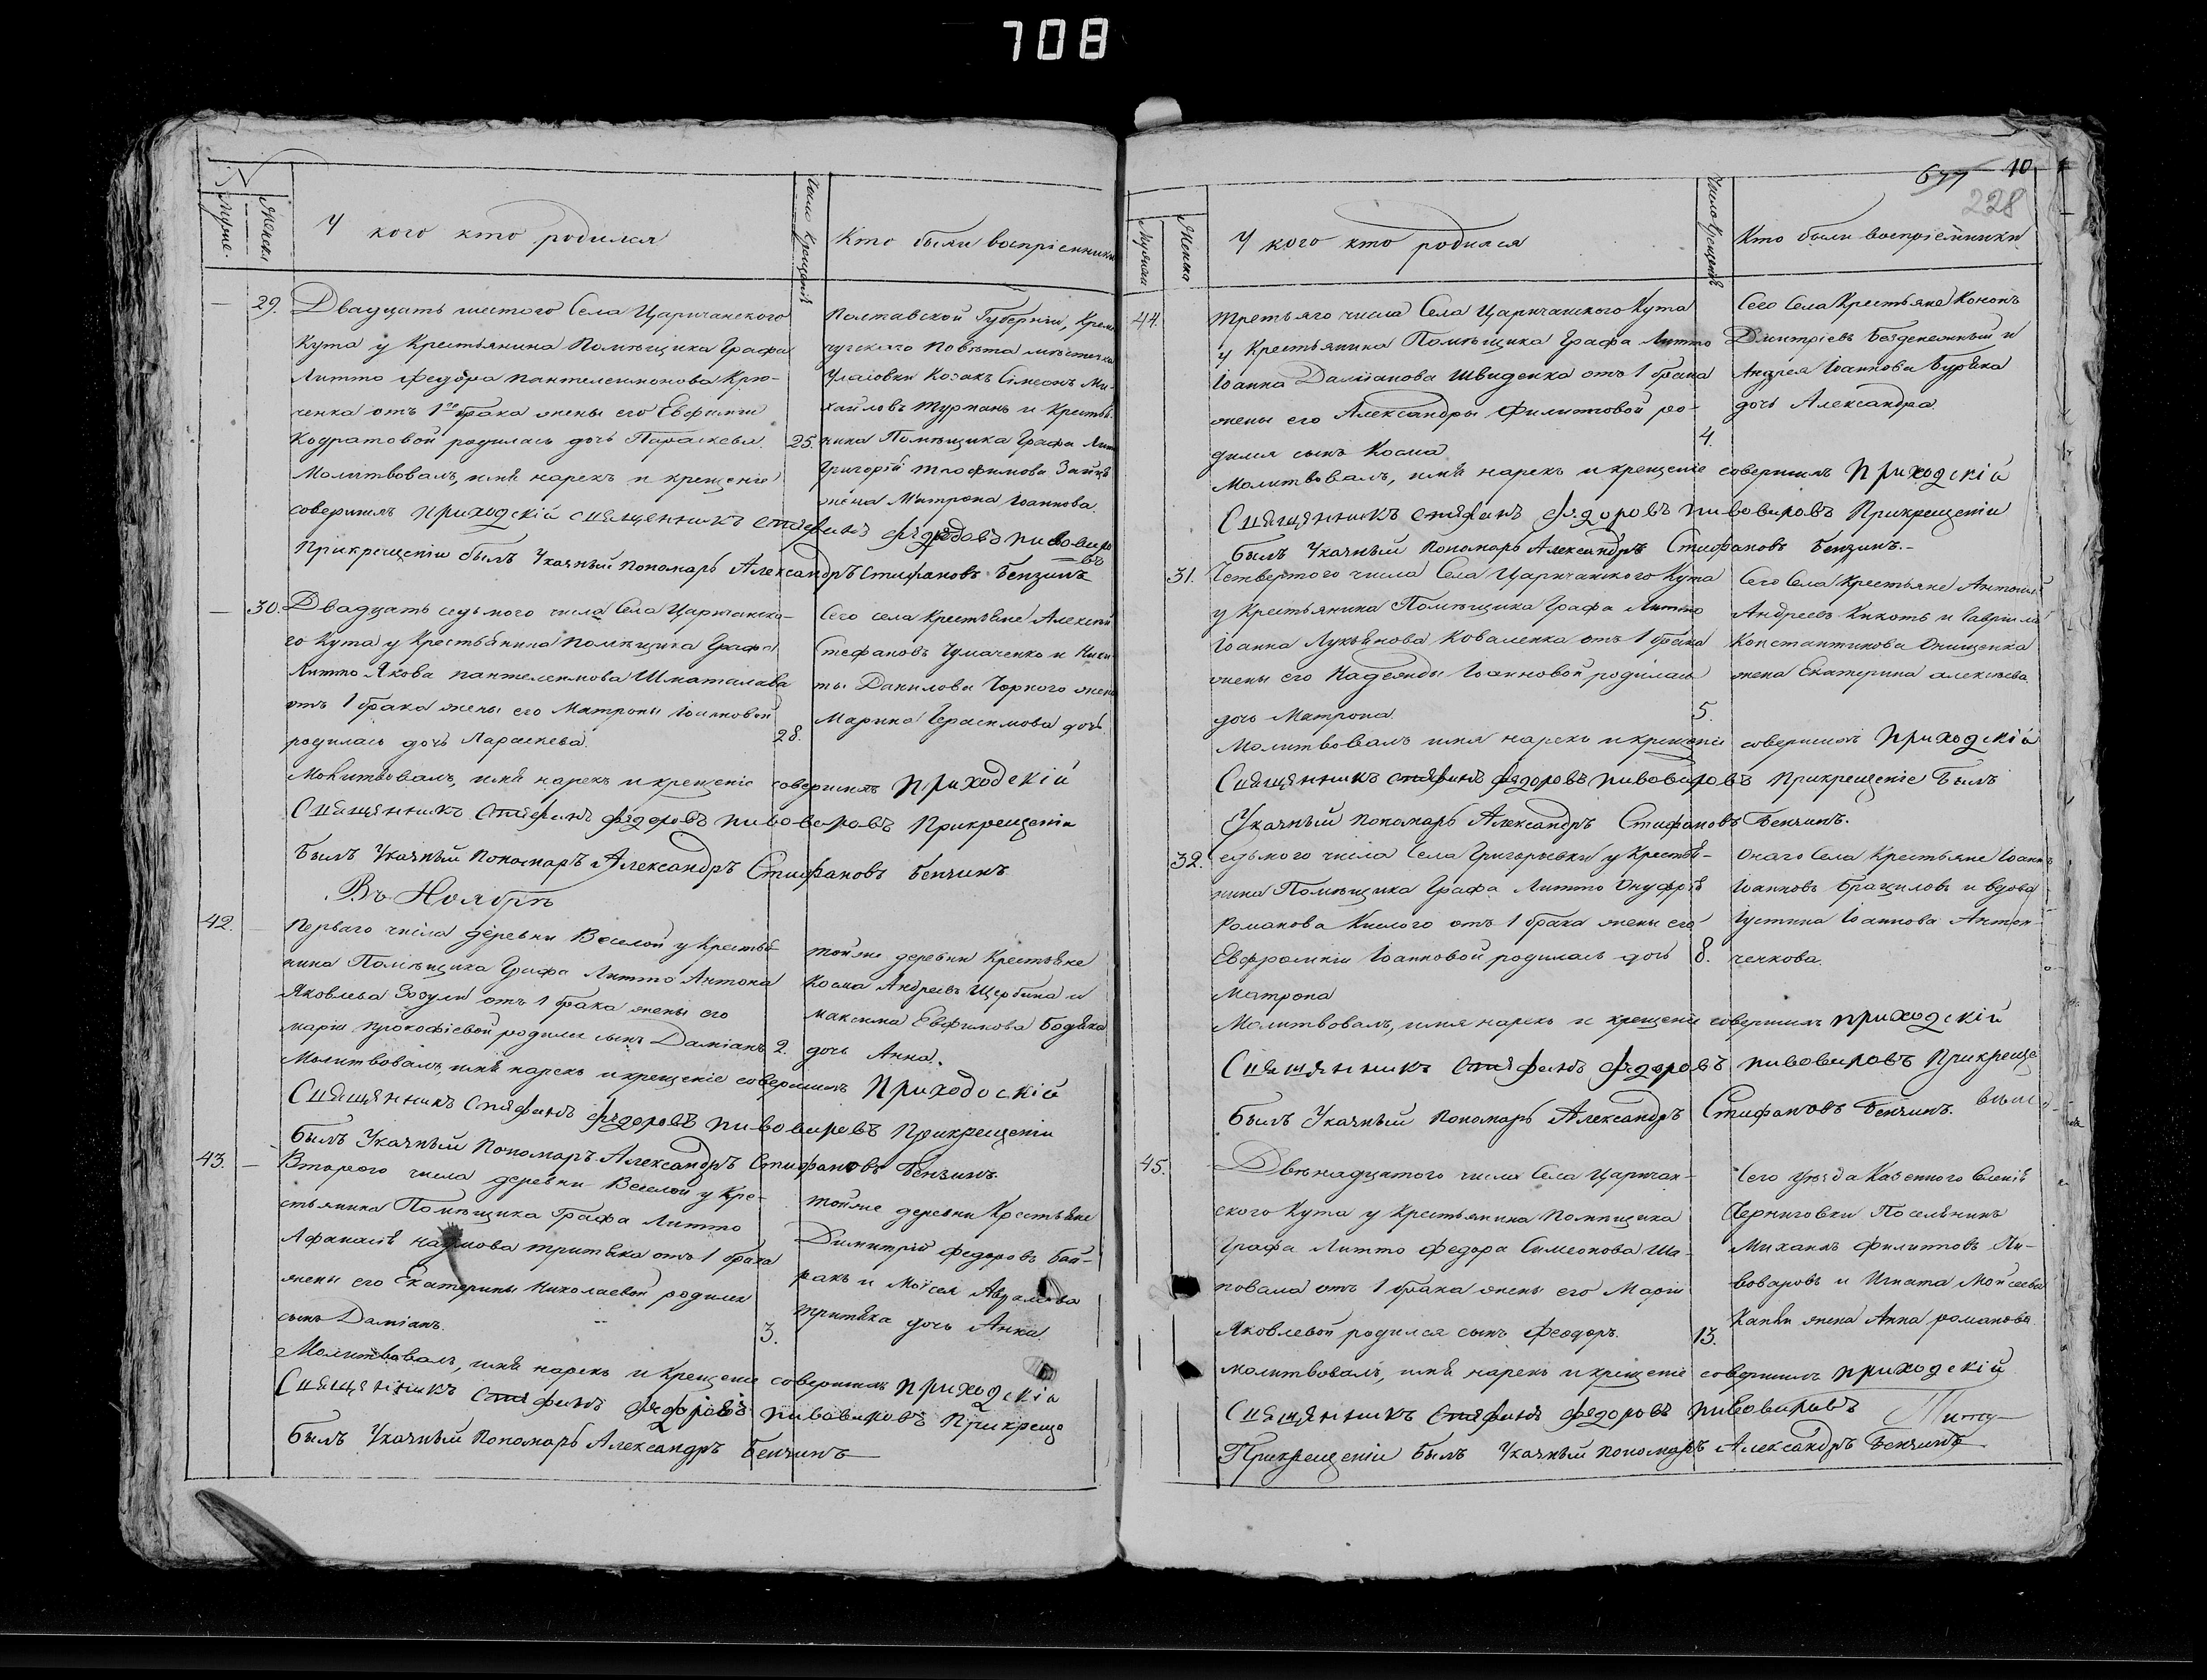 708
N
Мужие.
Женски
У кого кто родился
Число Крещенія
Кто были воспріемники
29.
Двадцать шестого Села Царичанского
Кута у Крестьянина Помѣщика Графа
Литто Федора Пантелеимонова Крю-
ченка отъ 1го брака жены его Евфиміи
Кодратовой родилась дочь Параскевья
25.
Молитвовалъ, имя нарекъ и крещеніе
совершилъ приходскій священникъ Стефанъ Федоровъ Пивоваро
въ
Прикрещеніи былъ Указный пономарь Александръ Стифановъ Бензинъ
Полтавской Губерніи, Креме
чугскаго Повѣта мѣстечка
Козакъ Симеонъ Ми-
хайловъ Турманъ и Крестья
нина Помѣщика Графа Лит
Григорій Трофимова Зайцѣ
жена Матрона Іоаннова.
30.
Двадцать седьмого числа Села Царичанско-
го Кута у Крестьянина Помѣщика Графа
Литто Якова Пантелеимова Шматалава
отъ 1 брака жены его Матроны Іоанновой
родилась дочь Параскева.
28.
Молитвовалъ, имя нарекъ и крещеніе совершилъ приходскій
Священникъ Стефанъ Федоровъ Пивоваровъ Прикрещеніи
былъ Указный пономаръ Александръ Стифановъ Бензинъ
Сего села Крестьяне Алексѣй
Стефановъ Чумаченко и Ники
ты Данилова Чорного жена
Марина Герасимова дочь
Въ Ноябрѣ
42.
Перваго числа деревни Веселой у Крестья
нина Помѣщика Графа Литто Антона
Яковлева Зозули отъ 1 брака жены его
Маріи Прокофіевой родился сынъ Даміанъ
2.
Молитвовалъ, имя нарекъ и крещеніе совершилъ Приходскій
Священникъ Стефанъ Федоровъ Пивоваровъ Прикрещеніи
былъ Указный Пономаръ Александръ Стифановъ Бензинъ.
тойже деревни Крестьяне
Косма Андреевъ Щербина и
Максима Евфимова Бодяка
дочь Анна.
43.
Второго числа деревни Веселой у Кре-
стьянина Помѣщика Графа Литто
Афанасія Наумова Тритяка отъ 1 брака
жены его Екатерины Николаевой родился
сынъ Даміанъ.
3.
Молитвовалъ, имя нарекъ и Крещеніе совершилъ приходскій
Священникъ Стефанъ Федоровъ Пивоваровъ Прикреще
былъ Указный Пономарь Александръ Бензинъ
тойже деревни Крестьяне
Димитрій Федоровъ Бай-
ракъ и Моісея Аврамова
Тритяка дочь Анна.
677
10
228
Мужески
Женска
У кого кто родился
Число Крещенія
Кто были воспріемники
44.
Третьяго числа Села Царичанского Кута
у Крестьянина Помѣщика Графа Литто
Іоанна Даміанова Швиденка отъ 1 брака
жены его Александры Филиповой ро-
4.
дился сынъ Косма
Молитвовалъ, имя нарекъ и крещеніе совершилъ Приходскій
Священникъ Стефанъ Федоровъ Пивоваровъ Прикрещеніи
былъ Указный Пономарь Александръ Стифановъ Бензинъ.-
Сего Села Крестьяне Кононъ
Димитріевъ Безденежный и
Андрея Іоаннова Буряка
дочь Александра.
31.
Четвертого числа Села Царичанского Кута
у Крестьянина Помѣщика Графа Литто
Іоанна Лукьянова Коваленка отъ 1 брака
жены его Надежды Іоанновой родилась
дочь Матрона.
5.
Молитвовалъ имя нарекъ и крещеніе совершилъ приходскій
Священникъ Стефанъ Федоровъ Пивоваровъ Прикрещеніе былъ
Указный пономарь Александръ Стифановъ Бензинъ.
Сего Села Крестьяне Антоній
Андреевъ Кикоть и Гавріила
Константинова Онищенка
жена Екатерина Алексѣева.
32.
седьмого числа Села Григорьевки у Крестья-
нина Помѣщика Графа Литто Онуфрія
Романова Кислого отъ 1 брака жены его
Евфросиніи Іоанновой родилась дочь
8.
Матрона
Молитвовалъ, имя нарекъ и крещеніе совершилъ приходскій
Священникъ Стефанъ Федоровъ Пивоваровъ Прикреще
былъ Указный Пономарь Александръ Стифановъ Бензинъ.
Онаго Села Крестьяне Іоаннъ
Іоанновъ Брациловъ и вдова
Іустина Іоаннова Антон-
ченкова.
45.
Двѣнадцатого числа Села Царичан-
ского Кута у Крестьянина Помѣщика
Графа Литто Федора Симеонова Ша-
повала отъ 1 брака жены его Маріи
Яковлевой родился сынъ Феодоръ.
13.
Молитвовалъ, имя нарекъ и крещеніе совершилъ приходскій
Священникъ Стефанъ Федоровъ Пивоваровъ
Прикрещеніи былъ Указный пономаръ Александръ Бензинъ
Сего уѣзда Казенного Селенія
Черниговки Поселянинъ
Михаилъ Филиповъ Пи-
воваровъ и Игната Моисеева
жена Анна Романова